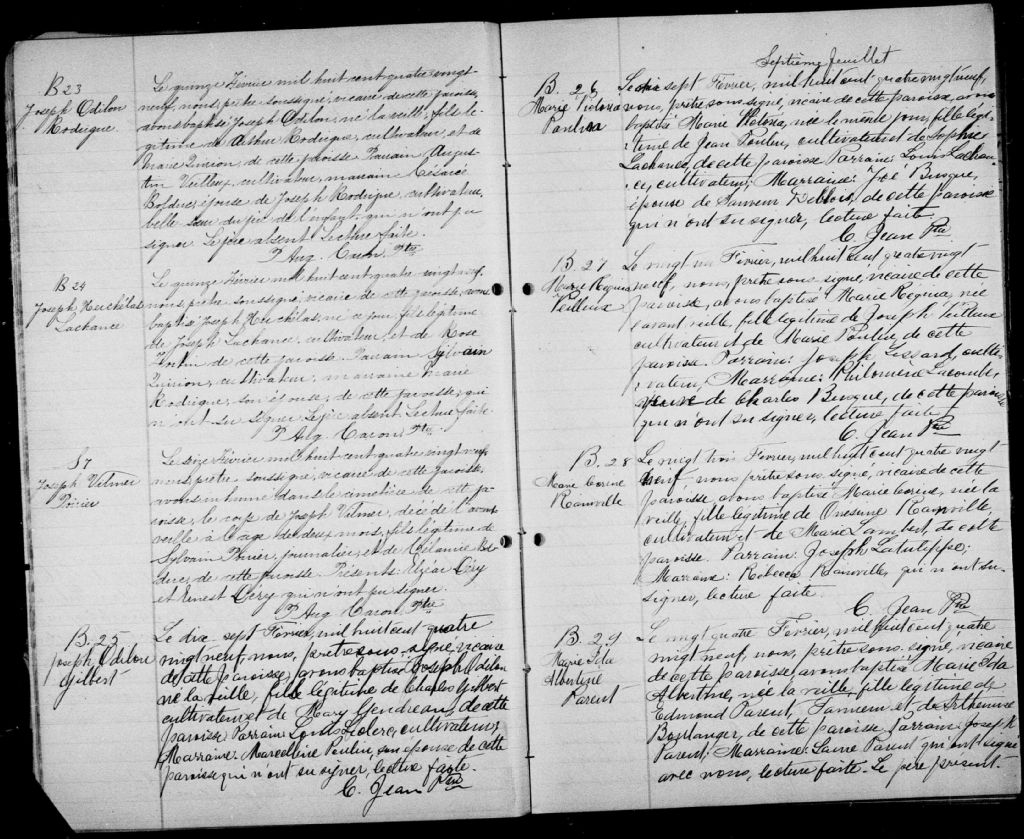 B 23
Joseph Odilon
Rodrigue
Le quinze Février mil huit cent quatre-vingt-
neuf, nous, prêtre soussigné, vicaire de cette paroisse,
avons baptisé Joseph Odilon, né la veille, fils lé-
gitime de Arthur Rodrigue, cultivateur, et de
Marie Quirion, de cette paroisse. Parrain Augus-
tin Veilleux, cultivateur, marraine Césarie
Bolduc, épouse de Joseph Rodrigue, cultivateur,
belle sœur du père de l'enfant, qui n'ont pu
signer. Le père absent. Lecture faite.
P. Aug. Caron, Ptre
B 24
Joseph
Lachance
Le quinze Février mil huit cent quatre vingt neuf,
nous, prêtre soussigné, vicaire de cette paroisse, avons
baptisé Joseph, né ce jour, fils légitime
de Joseph Lachance, cultivateur, et de Rose
de cette paroisse. Parrain Sylvain
Quirion, cultivateur, marraine Marie
Rodrigue, son épouse, de cette paroisse, qui
n'ont su signer. Le père absent. Lecture faite.
P. Aug. Caron, Ptre
S 7
Joseph Vilmer
Poirier
Le seize Février mil huit cent quatre vingt neuf,
nous, prêtre soussigné, vicaire de cette paroisse,
avons inhumé dans le cimetière de cette pa-
roisse, le corps de Joseph Vilmer, décédé l'avant
veille à l'age de deux mois, fils légitime de
Sylvain Poirier, journalier, et de Mélanie Bol-
duc, de cette paroisse. Présents: Elzéar Cery
et Ernest Cery qui n'ont pu signer.
P. Aug. Caron, Ptre
B. 25
Joseph Odilon
Gilbert
Le dix sept Fevrier, mil huit cent quatre
vingt neuf, nous, prêtre sous-signé, vicaire
de cette paroisse, avons baptisé Joseph Odilon
né la veille, fils légitime de Charles Gilbert
cultivateur et de Mary Gendreau, de cette
paroisse. Parrain: Louis Leclerc, cultivateur;
Marraine: Marcelline Poulin, son épouse de cette
paroisse qui n'ont su signer, lecture faite.
C. Jean Ptre
Septième feuillet
B. 26
Marie
Poulin
Le dix sept Fevrier, mil huit cent quatre vingt neuf,
nous, prêtre sous-signé, vicaire de cette paroisse, avons
baptisé Marie, née le même jour, fille légi-
time de Jean Poulin, cultivateur et de Sophie
Lachance, de cette paroisse. Parrain: Louis Lachan-
ce, cultivateur; Marraine: Zoé Busque,
épouse de Sauveur Deblois, de cette paroisse
qui n'ont su signer, lecture faite.
C. Jean Ptre
B. 27
Marie Régina
Veilleux
Le vingt Fevrier, mil huit cent quatre vingt
neuf, nous, prêtre sous-signé, vicaire de cette
paroisse, avons baptisé Marie Régina, née
l'avant veille, fille légitime de Joseph Veilleux
cultivateur et de Marie Poulin, de cette
paroisse. Parrain: Joseph Lessard, culti-
vateur, Marraine: Philomène Lacombe,
veuve de Charles Busque, de cette paroisse
qui n'ont su signer, lecture faite.
C. Jean Ptre
B. 28
Marie Corine
Rainville
Le vingt trois Fevrier, mil huit cent quatre vingt
neuf, nous prêtre sous signé, vicaire de cette
paroisse, avons baptisé Marie Corine, née la
veille, fille légitime de Onesime Rainville,
cultivateur et de Marie Lambert, de cette
paroisse. Parrain: Joseph Latulippe;
Marraine: Rébecca Rainville, qui n'ont su
signer, lecture faite.
C. Jean Ptre
B. 29
Marie Ida
Albertine
Parent
Le vingt quatre Fevrier, mil huit cent quatre
vingt neuf, nous, prêtre sous-signé, vicaire
de cette paroisse, avons baptisé Marie Ida
Albertine, née la veille, fille légitime de
Edmond Parent, Tanneur et de Arthémise
Boulanger, de cette paroisse. Parrain: Joseph
Parent; Marraine: Laure Parent qui ont signé
avec nous, lecture faite. Le père présent.